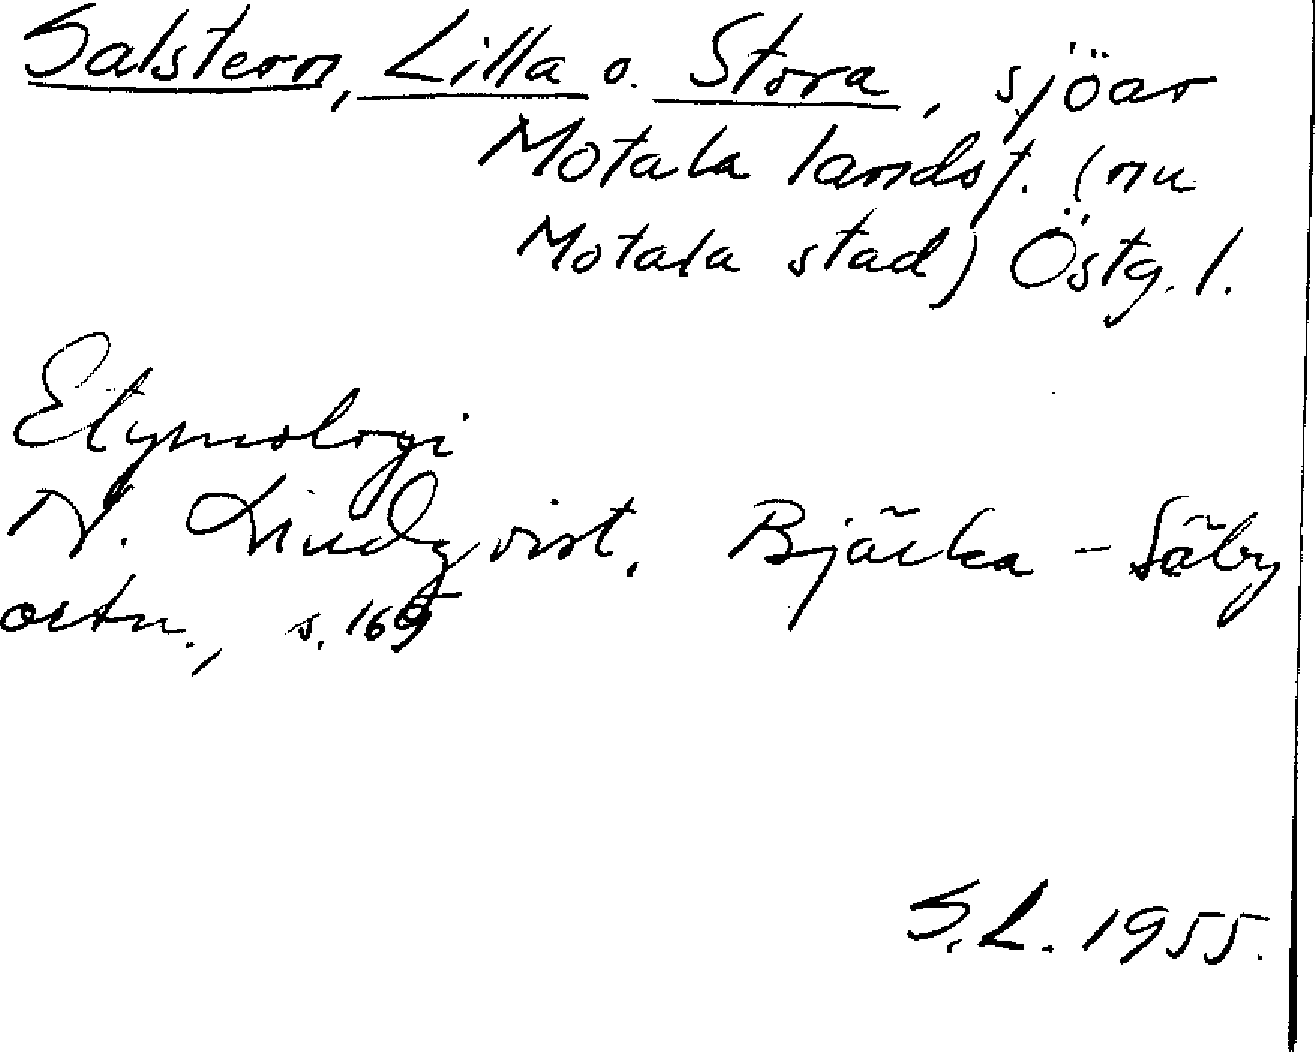 Salstern, Lilla o. Stora, sjöar
Motala landsf. (nu
Motala stad) Östg. l.
Etymologi
N. Lindqvist, Bjärka-Säby
ortn., s. 165
S.L. 1955.